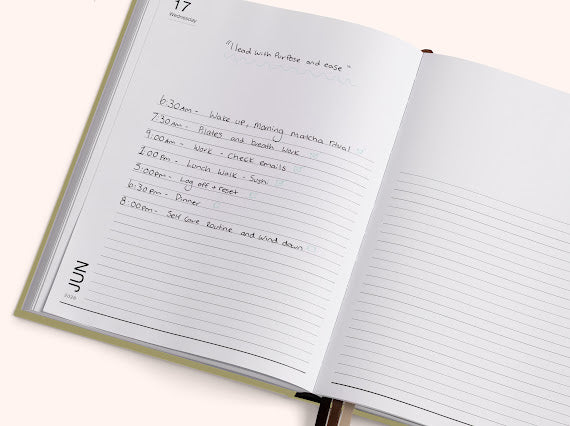 17
Wednesday
"I lead with Purpose and ease"
6:30Am - Wake up + morning matcha ritual
7:30Am - Pilates and breath work
9:00am - Work - Check emails
1:00pm - Lunch Walk - Sushi
5:00pm - Log off + reset
6:30pm - Dinner
8:00pm - Self Care Routine and wind down
JUN
2026